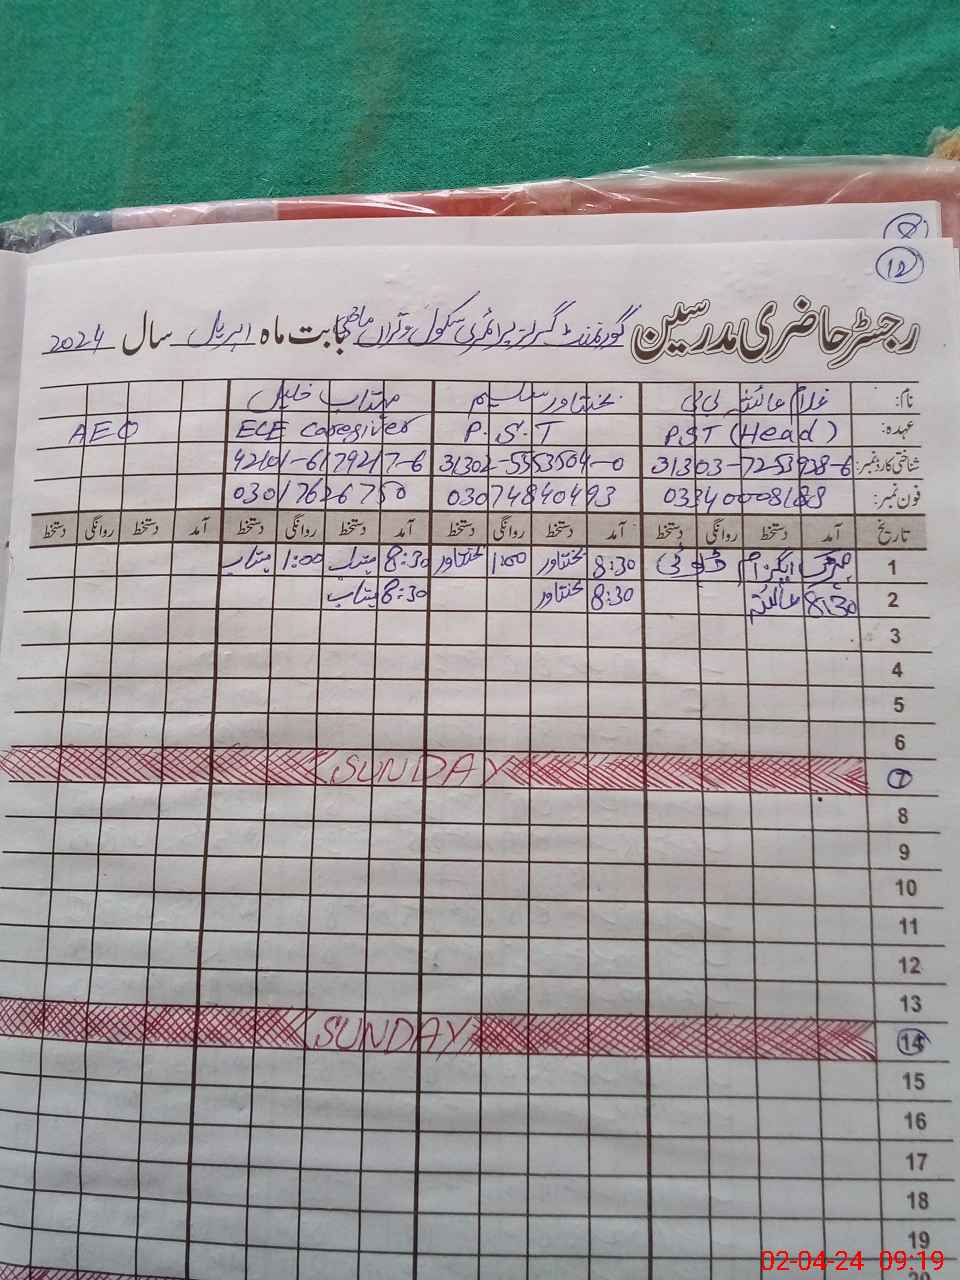 8
12
رجسٹر حاضری مدرسین گورنمنٹ گرلز پرائمری سکول بابت ماہ اپریل سال 2024
نام: غلام عائشہ بی بی بختاور سلیم مہتاب خلیل
عہدہ: PST (Head) P.S.T ECE Caregiver AEO
شناختی کارڈ نمبر: 31303-7253928-6 31302-5553504-0 42101-6179217-6
فون نمبر: 03340008188 03074840493 03017626750
تاریخ آمد دستخط روانگی دستخط آمد دستخط روانگی دستخط آمد دستخط روانگی دستخط آمد دستخط روانگی دستخط
1 ایگزام ڈیوٹی 8:30 بختاور 1:00 بختاور 8:30 مہتاب 1:00 مہتاب
2 8:30 عائشہ 8:30 بختاور 8:30 مہتاب
3
4
5
6
7 SUNDAY
8
9
10
11
12
13
14 SUNDAY
15
16
17
18
19
20
02-04-24 09:19